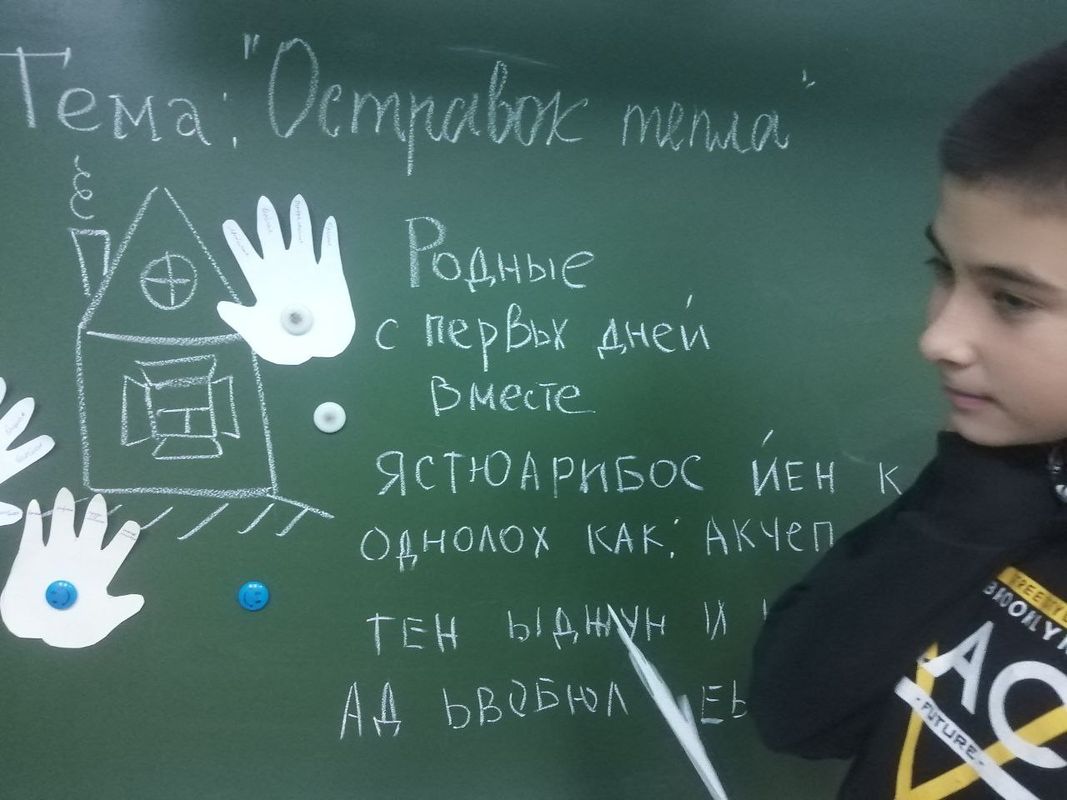 Тема: "Остравок тепла"
Родные
с первых дней
вместе
ЯСТЮАРИБОС ЙЕН К
ОДНОЛОХ КАК: АКЧЕП
ТЕН ЫДЖУН И
АД ЬВОБЮЛ
BROOKLYN
AC
-FUTURE-